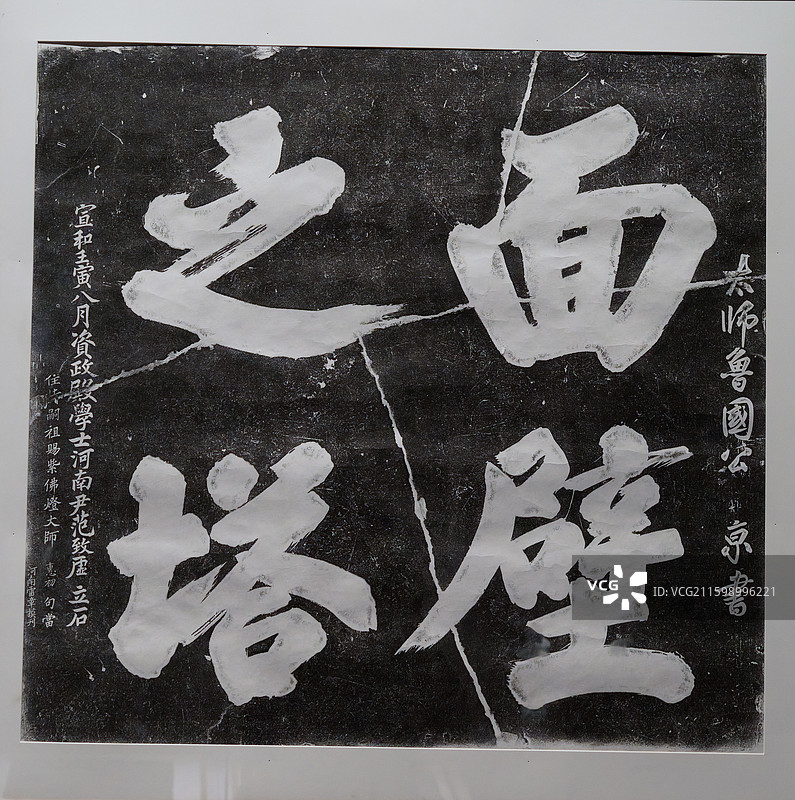 太師魯國公 京書
面壁
之塔
宣和壬寅八月資政殿學士河南尹范致虛立石
住 嗣祖賜紫佛燈大師 惠初 句當
河南 刊
VCG
ID: VCG211598996221